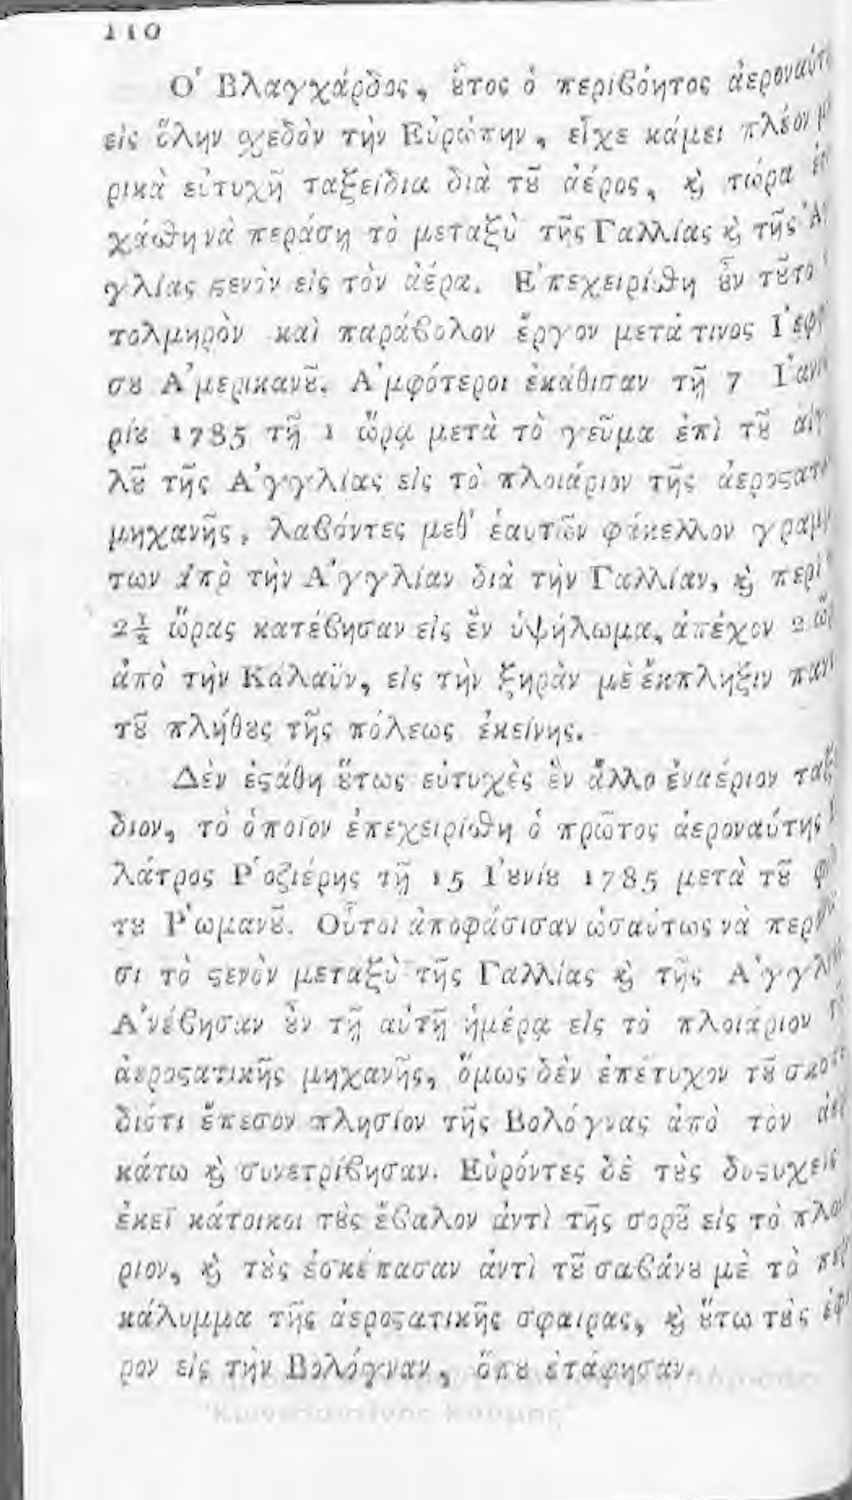 110
Ο῾ Βλαγχάρδος, ȣ̔́τος ὁ περιβόητος ἀεροναύτ
εἰς ὅλην σχεδὸν τὴν Εὐρώπην, εἶχε κάμει πλέον
ρικὰ εὐτυχῆ ταξείδια διὰ τȣ͂ ἀέρος, ϗ τώρα
χάσθη νὰ περάσῃ τὸ μεταξὺ τῆς Γαλλίας ϗ τῆς Ἀ
γλίας ϛενὸν εἰς τὸν ἀέρα. Ε᾿πεχειρίσθη ȣ̓͂ν τȣ͂το
τολμηρὸν καὶ παράβολον ἔργον μετά τινος Ι᾿εφ
σȣ Α᾿μερικανȣ͂. Α᾿μφότεροι ἐκάθισαν τῇ 7 Ι᾿αν
ρίȣ 1785 τῇ 1 ὥρᾳ μετὰ τὸ γεῦμα ἐπὶ τȣ͂ αἰγ
λȣ͂ τῆς Α᾿γγλίας εἰς τὸ πλοιάριον τῆς ἀεροϛατ
μηχανῆς, λαβόντες μεθ' ἑαυτῶν φάκελλον γραμ
των ἀπὸ τὴν Α᾿γγλίαν διὰ τὴν Γαλλίαν, ϗ περὶ
2½ ὥρας κατέβησαν εἰς ἓν ὑψήλωμα, ἀπέχον 2 ὥ
ἀπὸ τὴν Καλαῒν, εἰς τὴν ξηρὰν μὲ ἔκπληξιν παν
τȣ͂ πλήθȣς τῆς πόλεως ἐκείνης.
Δὲν ἐϛάθη ȣ̔́τως εὐτυχὲς ἓν ἄλλο ἐναέριον ταξ
διον, τὸ ὁποῖον ἐπεχειρίσθη ὁ πρῶτος ἀεροναύτης
λάτρος Ρ῾οζιέρης τῇ 15 Ι᾿ȣνίȣ 1785 μετὰ τȣ͂
τȣ Ρ῾ωμανȣ͂. Οὗτοι ἀποφάσισαν ὡσαύτως νὰ περ
σι τὸ ϛενὸν μεταξὺ τῆς Γαλλίας ϗ τῆς Α᾿γγλ
Α᾿νέβησαν ȣ̓͂ν τῇ αὐτῇ ἡμέρᾳ εἰς τὸ πλοιάριον
ἀεροϛατικῆς μηχανῆς, ὅμως δὲν ἐπέτυχον τȣ͂ σκο
διότι ἔπεσον πλησίον τῆς Βολόγνας ἀπὸ τὸν
κάτω ϗ συνετρίβησαν. Εὑρόντες δὲ τȣ̀ς δυϛυχεῖς
ἐκεῖ κάτοικοι τȣ̀ς ἔβαλον ἀντὶ τῆς σορȣ͂ εἰς τὸ πλο
ριον, ϗ τȣ̀ς ἐσκέπασαν ἀντὶ τȣ͂ σαβάνȣ μὲ τὸ
κάλυμμα τῆς ἀεροϛατικῆς σφαιρας, ϗ ȣ̔́τω τȣ̀ς ἐφ
ρον εἰς τὴν Βολόγναν, ὅπȣ ἐτάφησαν.